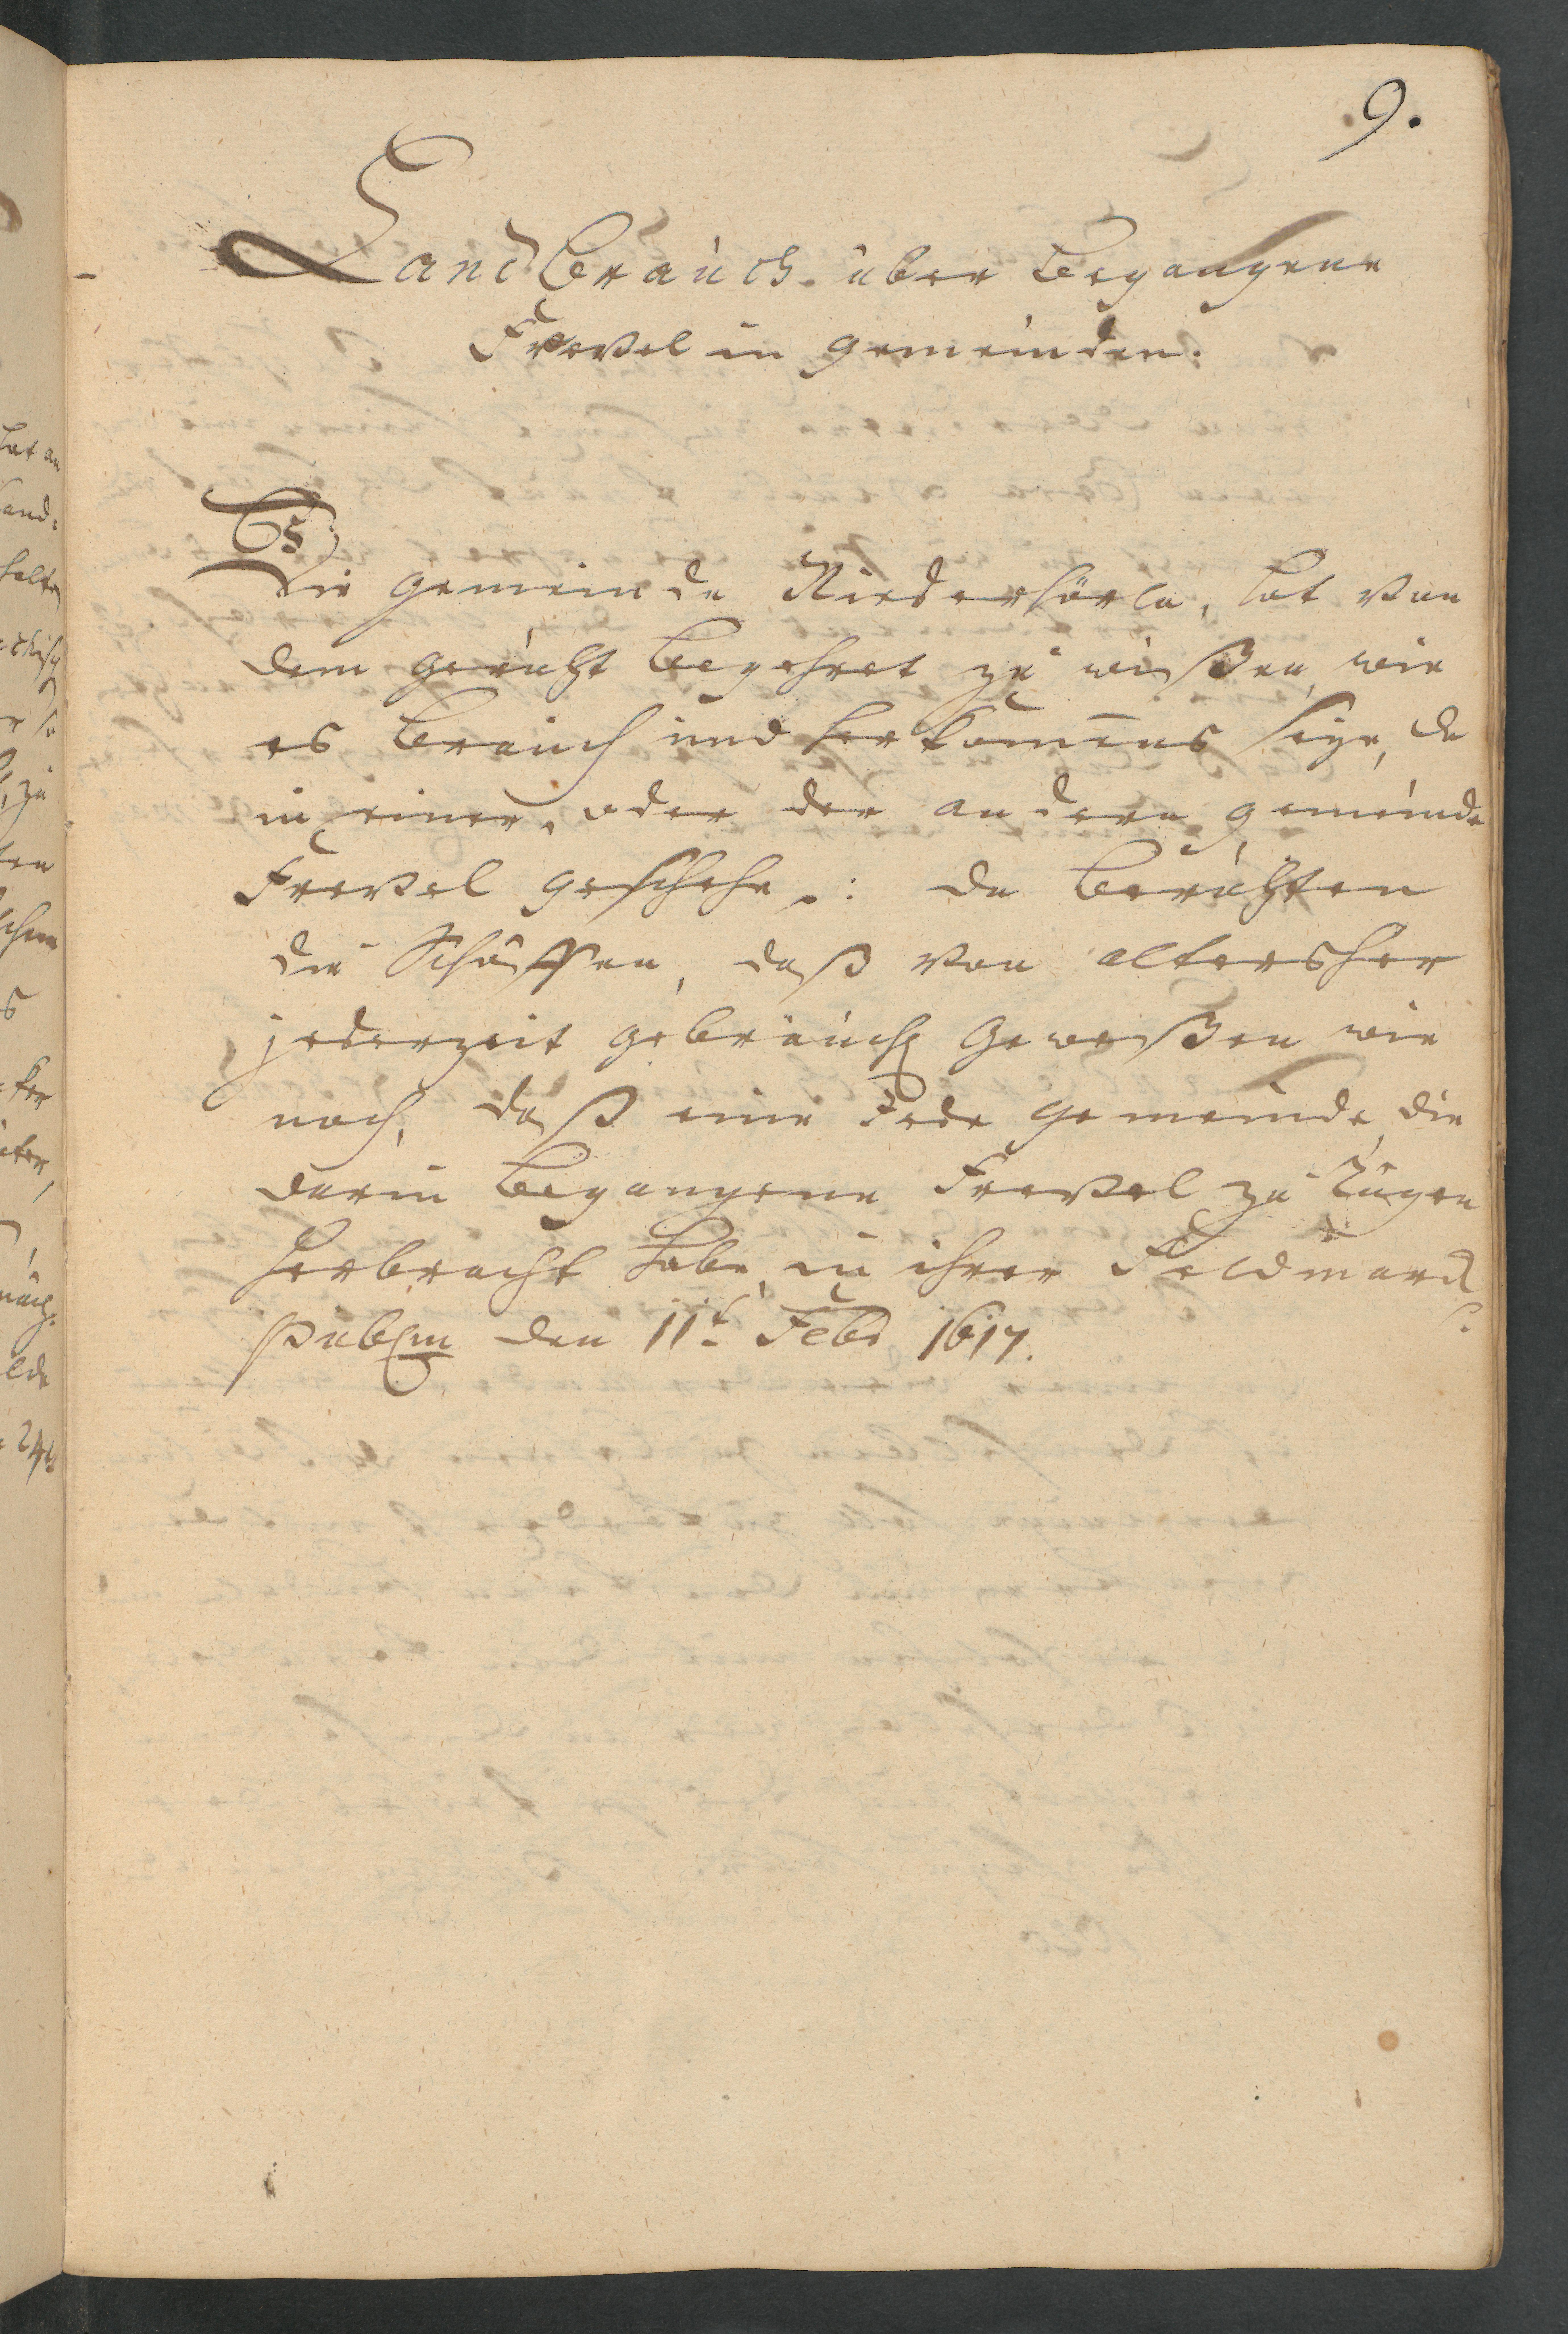 9.
LandBrauch. über Begangene
Frevel in gemeinden.
Die gemeinde Niederhörla, hat von
dem gericht Begehret zu wißen, wie
es Brauch und herkom̄ens seye, da
in einer, oder der andern gemeinde
Frevel geschehe.: da berichten
die Schöffen, daß von altersher
jederzeit gebräuch geweßen wie
noch, daß eine Jede gemeinde, die
darin Begangene Frevel zu Rügen
herbracht habe, in ihrer Feldmarck
den 11t Febr 1617.